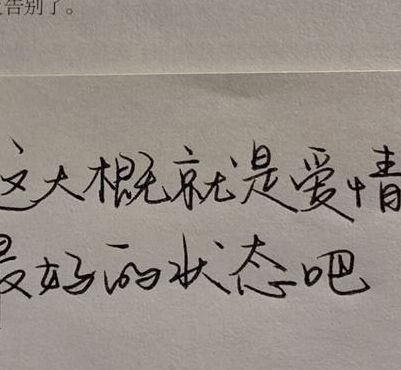 告别了。
这大概就是爱情
最好的状态吧